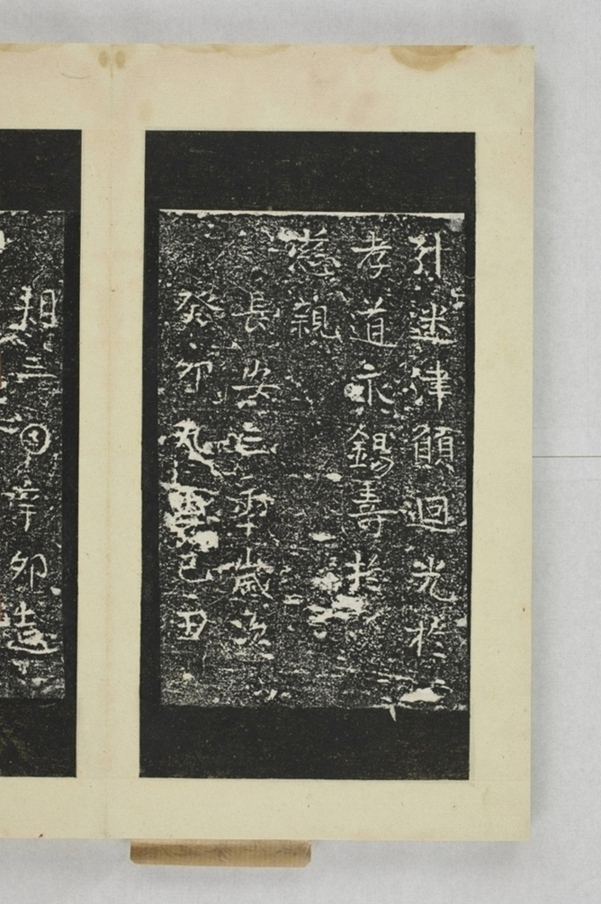 引迷津願迴光於
孝道永錫壽於
慈親
長安三年歲次
癸卯九己丑
朔三𡆠辛卯造